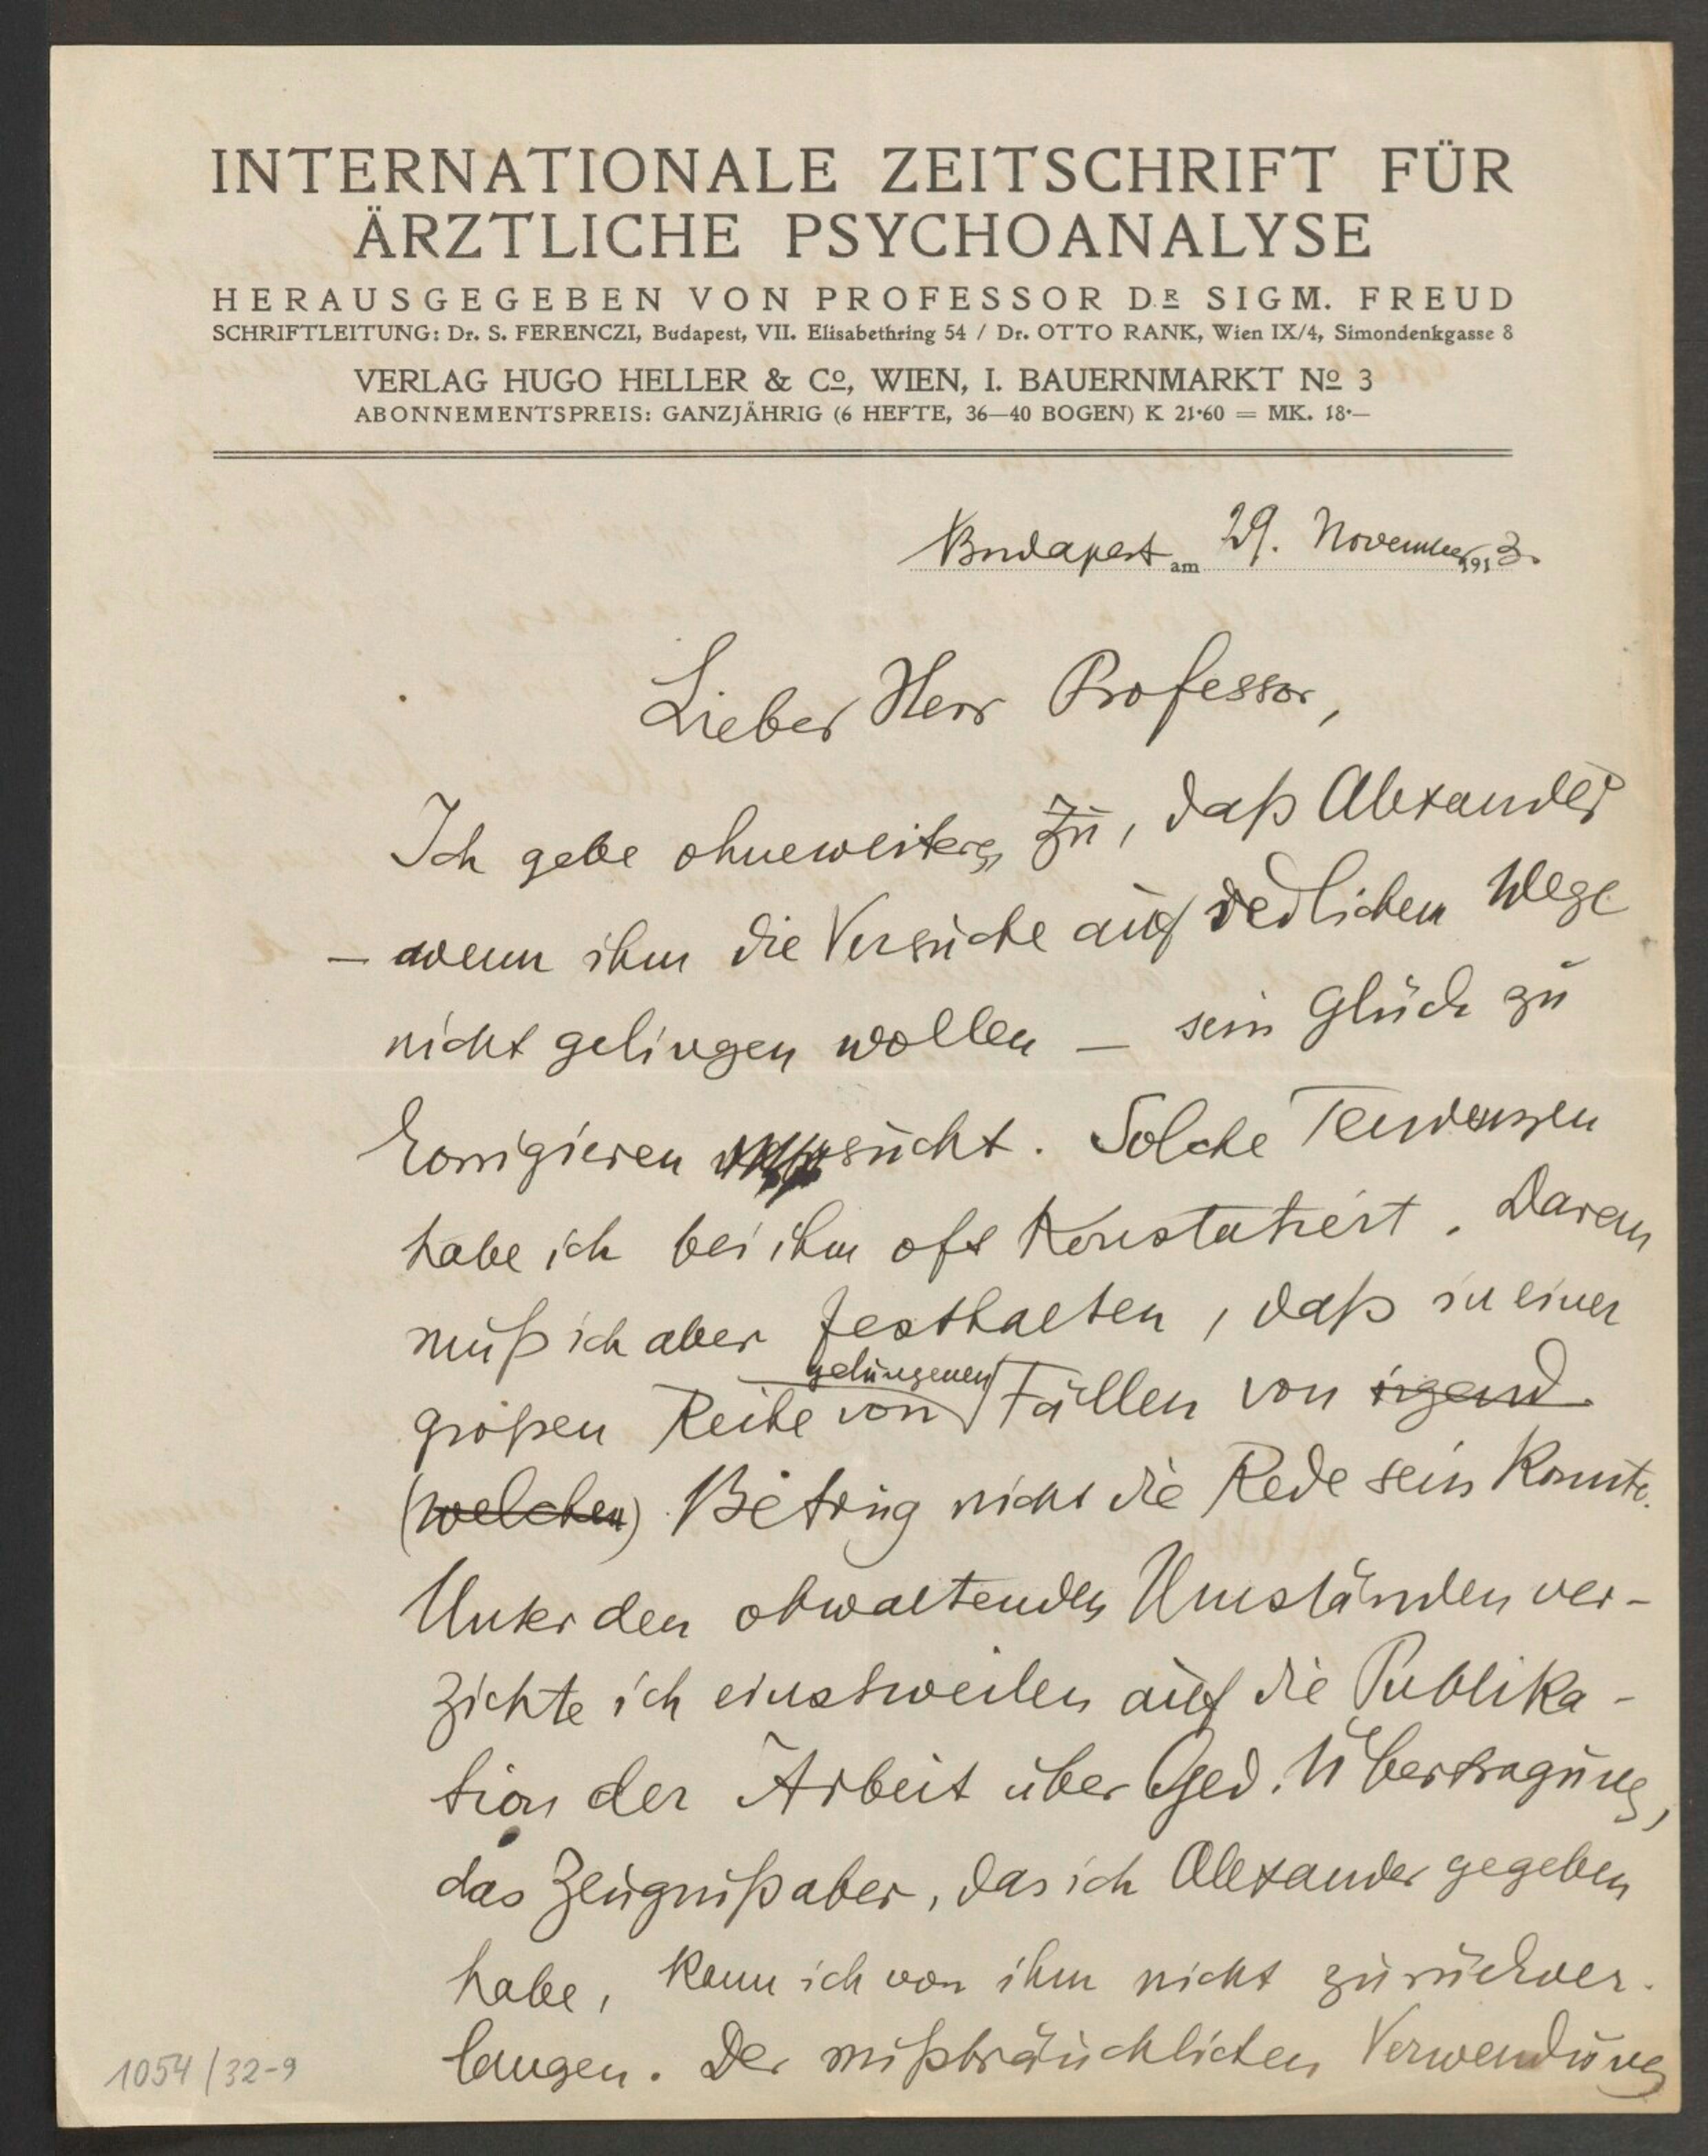 INTERNATIONALE ZEITSCHRIFT FÜR
ÄRZTLICHE PSYCHOANALYSE
HERAUSGEGEBEN VON PROFESSOR DR SIGM. FREUD
SCHRIFTLEITUNG: Dr. S. FERENCZI, Budapest, VII. Elisabethring 54 / Dr. OTTO RANK, Wien IX/4, Simondenkgasse 8
VERLAG HUGO HELLER & Co, WIEN, I. BAUERNMARKT No 3
ABONNEMENTSPREIS: GANZJÄHRIG (6 HEFTE, 36—40 BOGEN) K 21·60 = MK. 18·—
Budapest am 29. November 1913.
Lieber Herr Professor,
Ich gebe ohneweiters zu, daß Alexander
— wenn ihm die Versuche auf redlichem Wege
nicht gelingen wollen — sein Glück zu
korrigieren sucht. Solche Tendenzen
habe ich bei ihm oft konstatiert. Daran
muß ich aber festhalten, daß in einer
gelungenen
großen Reihe von Fällen von irgend
(welchen) Betrug nicht die Rede sein konnte.
Unter den obwaltenden Umständen ver-
zichte ich einstweilen auf die Publika-
tion der Arbeit über Ged. Übertragung,
das Zeugniß aber, das ich Alexander gegeben
habe, kann ich von ihm nicht zurückver-
langen. Der mißbräuchlichen Verwendung
1054/32-9